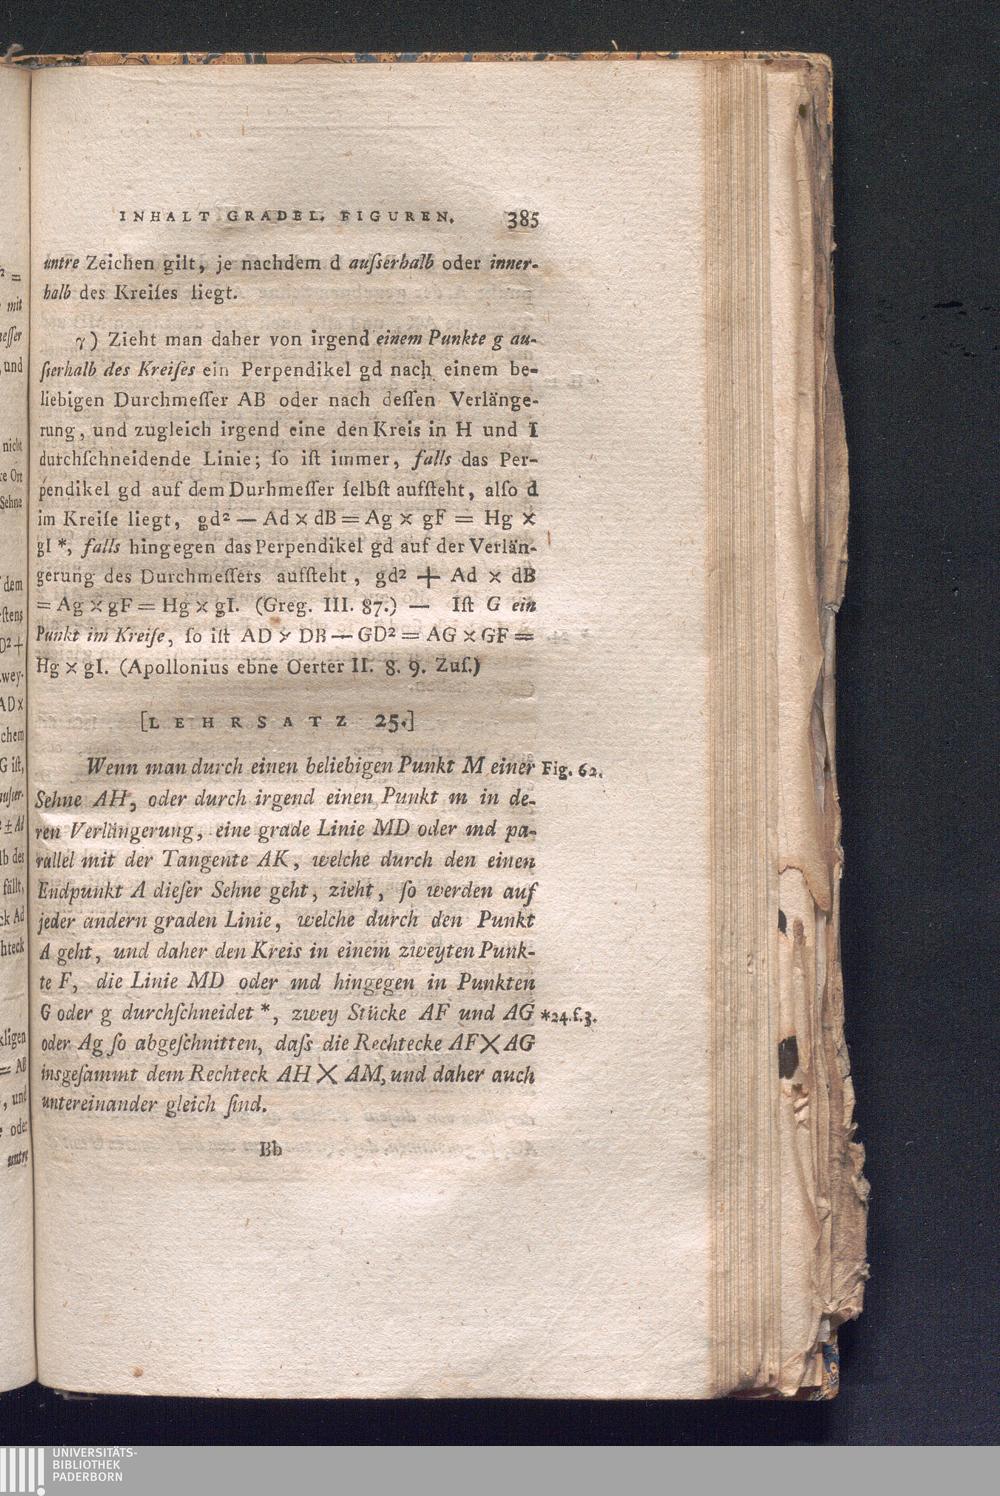 INHALT GRADEL. FIGUREN. 385
untre Zeichen gilt, je nachdem d auſserhalb oder inner-
halb des Kreiſes liegt.
γ) Zieht man daher von irgend einem Punkte g au-
ſserhalb des Kreiſes ein Perpendikel gd nach einem be-
liebigen Durchmeſſer AB oder nach deſſen Verlänge-
rung, und zugleich irgend eine den Kreis in H und I
durchſchneidende Linie; ſo iſt immer, falls das Per-
pendikel gd auf dem Durhmeſſer ſelbſt aufſteht, alſo d
im Kreiſe liegt, gd² — Ad × dB = Ag × gF = Hg ×
gI *, falls hingegen das Perpendikel gd auf der Verlän-
gerung des Durchmeſſers aufſteht, gd² + Ad × dB
= Ag × gF = Hg × gI. (Greg. III. 87.) — Iſt G ein
Punkt im Kreiſe, ſo iſt AD × DB — GD² = AG × GF =
Hg × gI. (Apollonius ebne Oerter II. 8. 9. Zuſ.)
[LEHRSATZ 25.]
Wenn man durch einen beliebigen Punkt M einer Fig. 62.
Sehne AH, oder durch irgend einen Punkt m in de-
ren Verlängerung, eine grade Linie MD oder md pa-
rallel mit der Tangente AK, welche durch den einen
Endpunkt A dieſer Sehne geht, zieht, ſo werden auf
jeder andern graden Linie, welche durch den Punkt
A geht, und daher den Kreis in einem zweyten Punk-
te F, die Linie MD oder md hingegen in Punkten
G oder g durchſchneidet *, zwey Stücke AF und AG *24.f.3.
oder Ag ſo abgeſchnitten, daſs die Rechtecke AF × AG
insgeſammt dem Rechteck AH × AM, und daher auch
untereinander gleich ſind.
Bb
UNIVERSITÄTS-
BIBLIOTHEK
PADERBORN